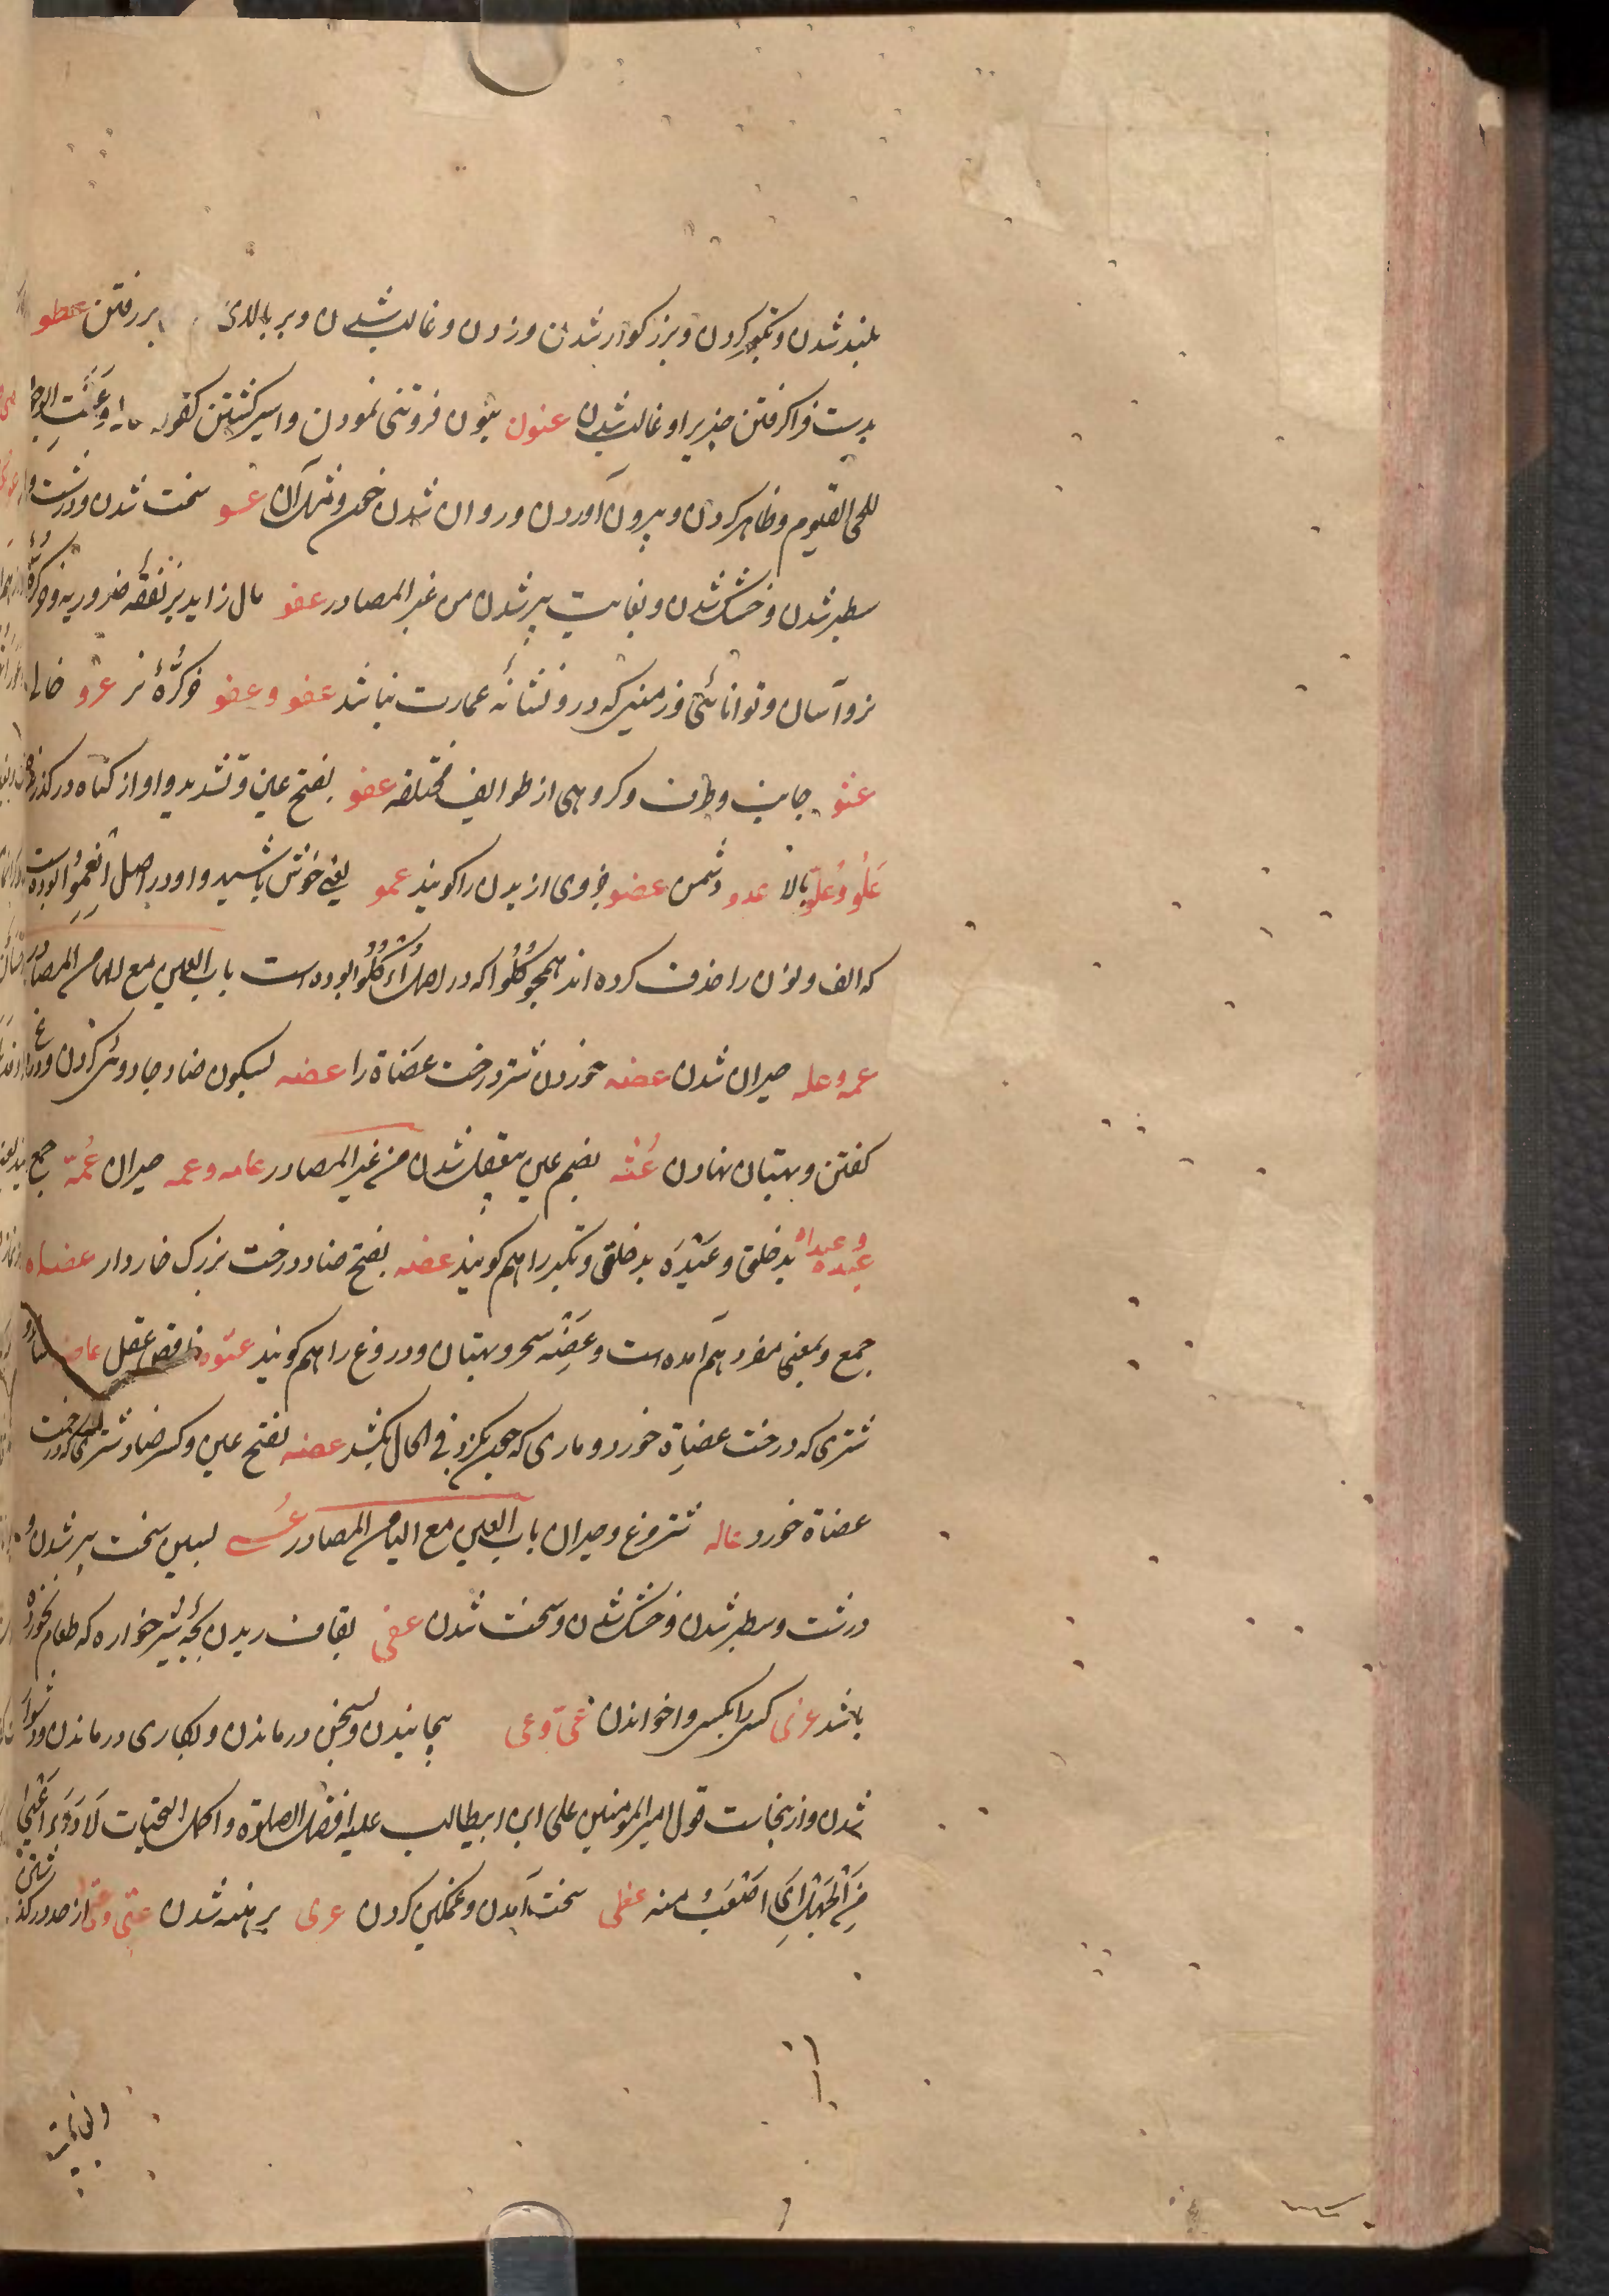 بلند شدن و تکبر کردن و بزرکوار شدن و زدن و غالب شدن و بر بالای بر رفتن عطو
بدست فراکرفتن چیزیرا و غالب شدن عنون بنون فروتنی نمودن و اسیر کشتن کقوله تعالی وَعَنَتِ الوجوه
للحی القیوم و ظاهر کردن و بیرون آوردن و روان شدن خون و مثل آن عسو سخت شدن و درشت و
سطبر شدن و خشک شدن و بغایت پیر شدن من غیر المصادر عفو مال زاید بر نفقه ضروریه و خرکُرّه
نر و آسان و توانائی و زمینی که درو نشانه عمارت نباشد عفو و عِفو خرکُرّۀ نر عرو خالی
عنو جانب و طرف و کروهی از طوایف مختلفه عفو بفتح عین و تشدید واو از کناه درکذرنده
عَلو و عُلو بالا عدو دشمن عضو جزوی از بدن را کویند عمو یعنی خوش باشید و او در اصل اَنعِموُا بوده است
که الف و نون را حذف کرده اند همچو کُلُوا که در اصل اُءکُلُوا بوده است باب العین مع الهاء من المصادر
عمه و عله حیران شدن عضه خوردن شتر درخت عضاة را عضه بسکون ضاد جادوئی کردن و دروغ
کفتن و بهتان نهادن عُته بضم عین بیعقل شدن من غیر المصادر عامه و عمه حیران عُمّه جمع
عیده و عیداه بدخلق و عَیْدَه بدخلقی و تکبر را هم کویند عضه بفتح ضاد درخت بزرک خاردار عضاه
جمع و بمعنی مفرد هم آمده است و عِضَه سحر و بهتان و دروغ را هم کویند عتوه ناقص عقل عاضه
شتری که درخت عضاة خورد و ماری که چون بکزد فی الحال بکشد عضه بفتح عین و کسر ضاد شتری که درخت
عضاة خورد عاله شترمرغ و حیران باب العین مع الیاء من المصادر عُسی بسین سخت پیر شدن و
درشت و سطبر شدن و خشک شدن و سخت شدن عقی بقاف ریدن بچۀ شیرخواره که طعام نخورده
باشد عزی کسی را بکسی واخواندن عَیّ و عی پیچانیدن و بسخن درماندن و بکاری درماندن و دشوار
شدن و ازینجاست قول امیرالمومنین علی ابن ابیطالب علیه افضل الصلوة و اکمل التحیات لَا دَوَاءَ اَعْییٰ
مِنَ الْجَهْلِ ای اَصْعَبُ منه عظی سخت آمدن و غمکین کردن عری برهنه شدن عتی و عِتی از حد درکذشتن